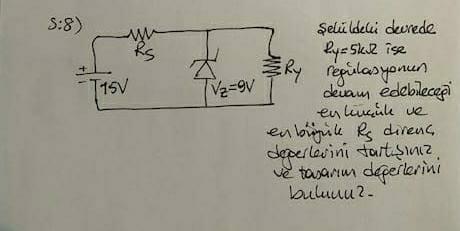 S:8)
Rs
15V
Vz=9V
Ry
Şekildeki devrede
Ry=5kΩ ise
regülasyonun
devam edebileceği
en küçük ve
en büyük Rs direnç
değerlerini tartışınız
ve tasarım değerlerini
bulunuz.